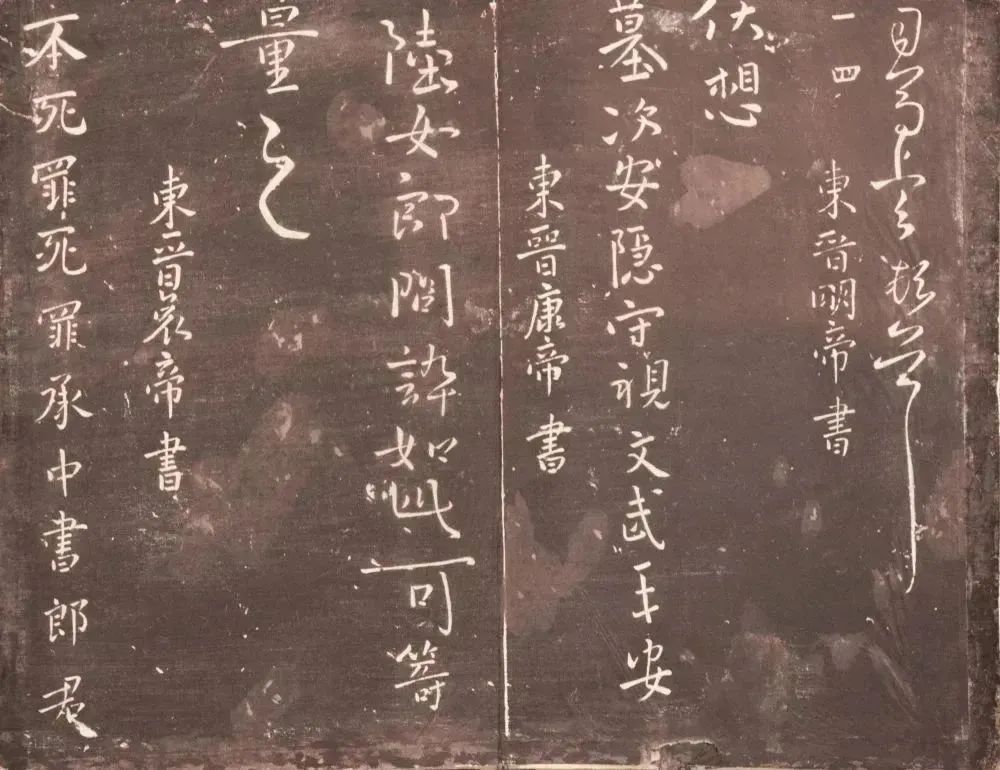 一四
東晉明帝書
伏想
墓次安隱守視文武平安
東晉康帝書
陸女郎問訊如此可籌
量之
東晉哀帝書
丕死罪死罪承中書郎君